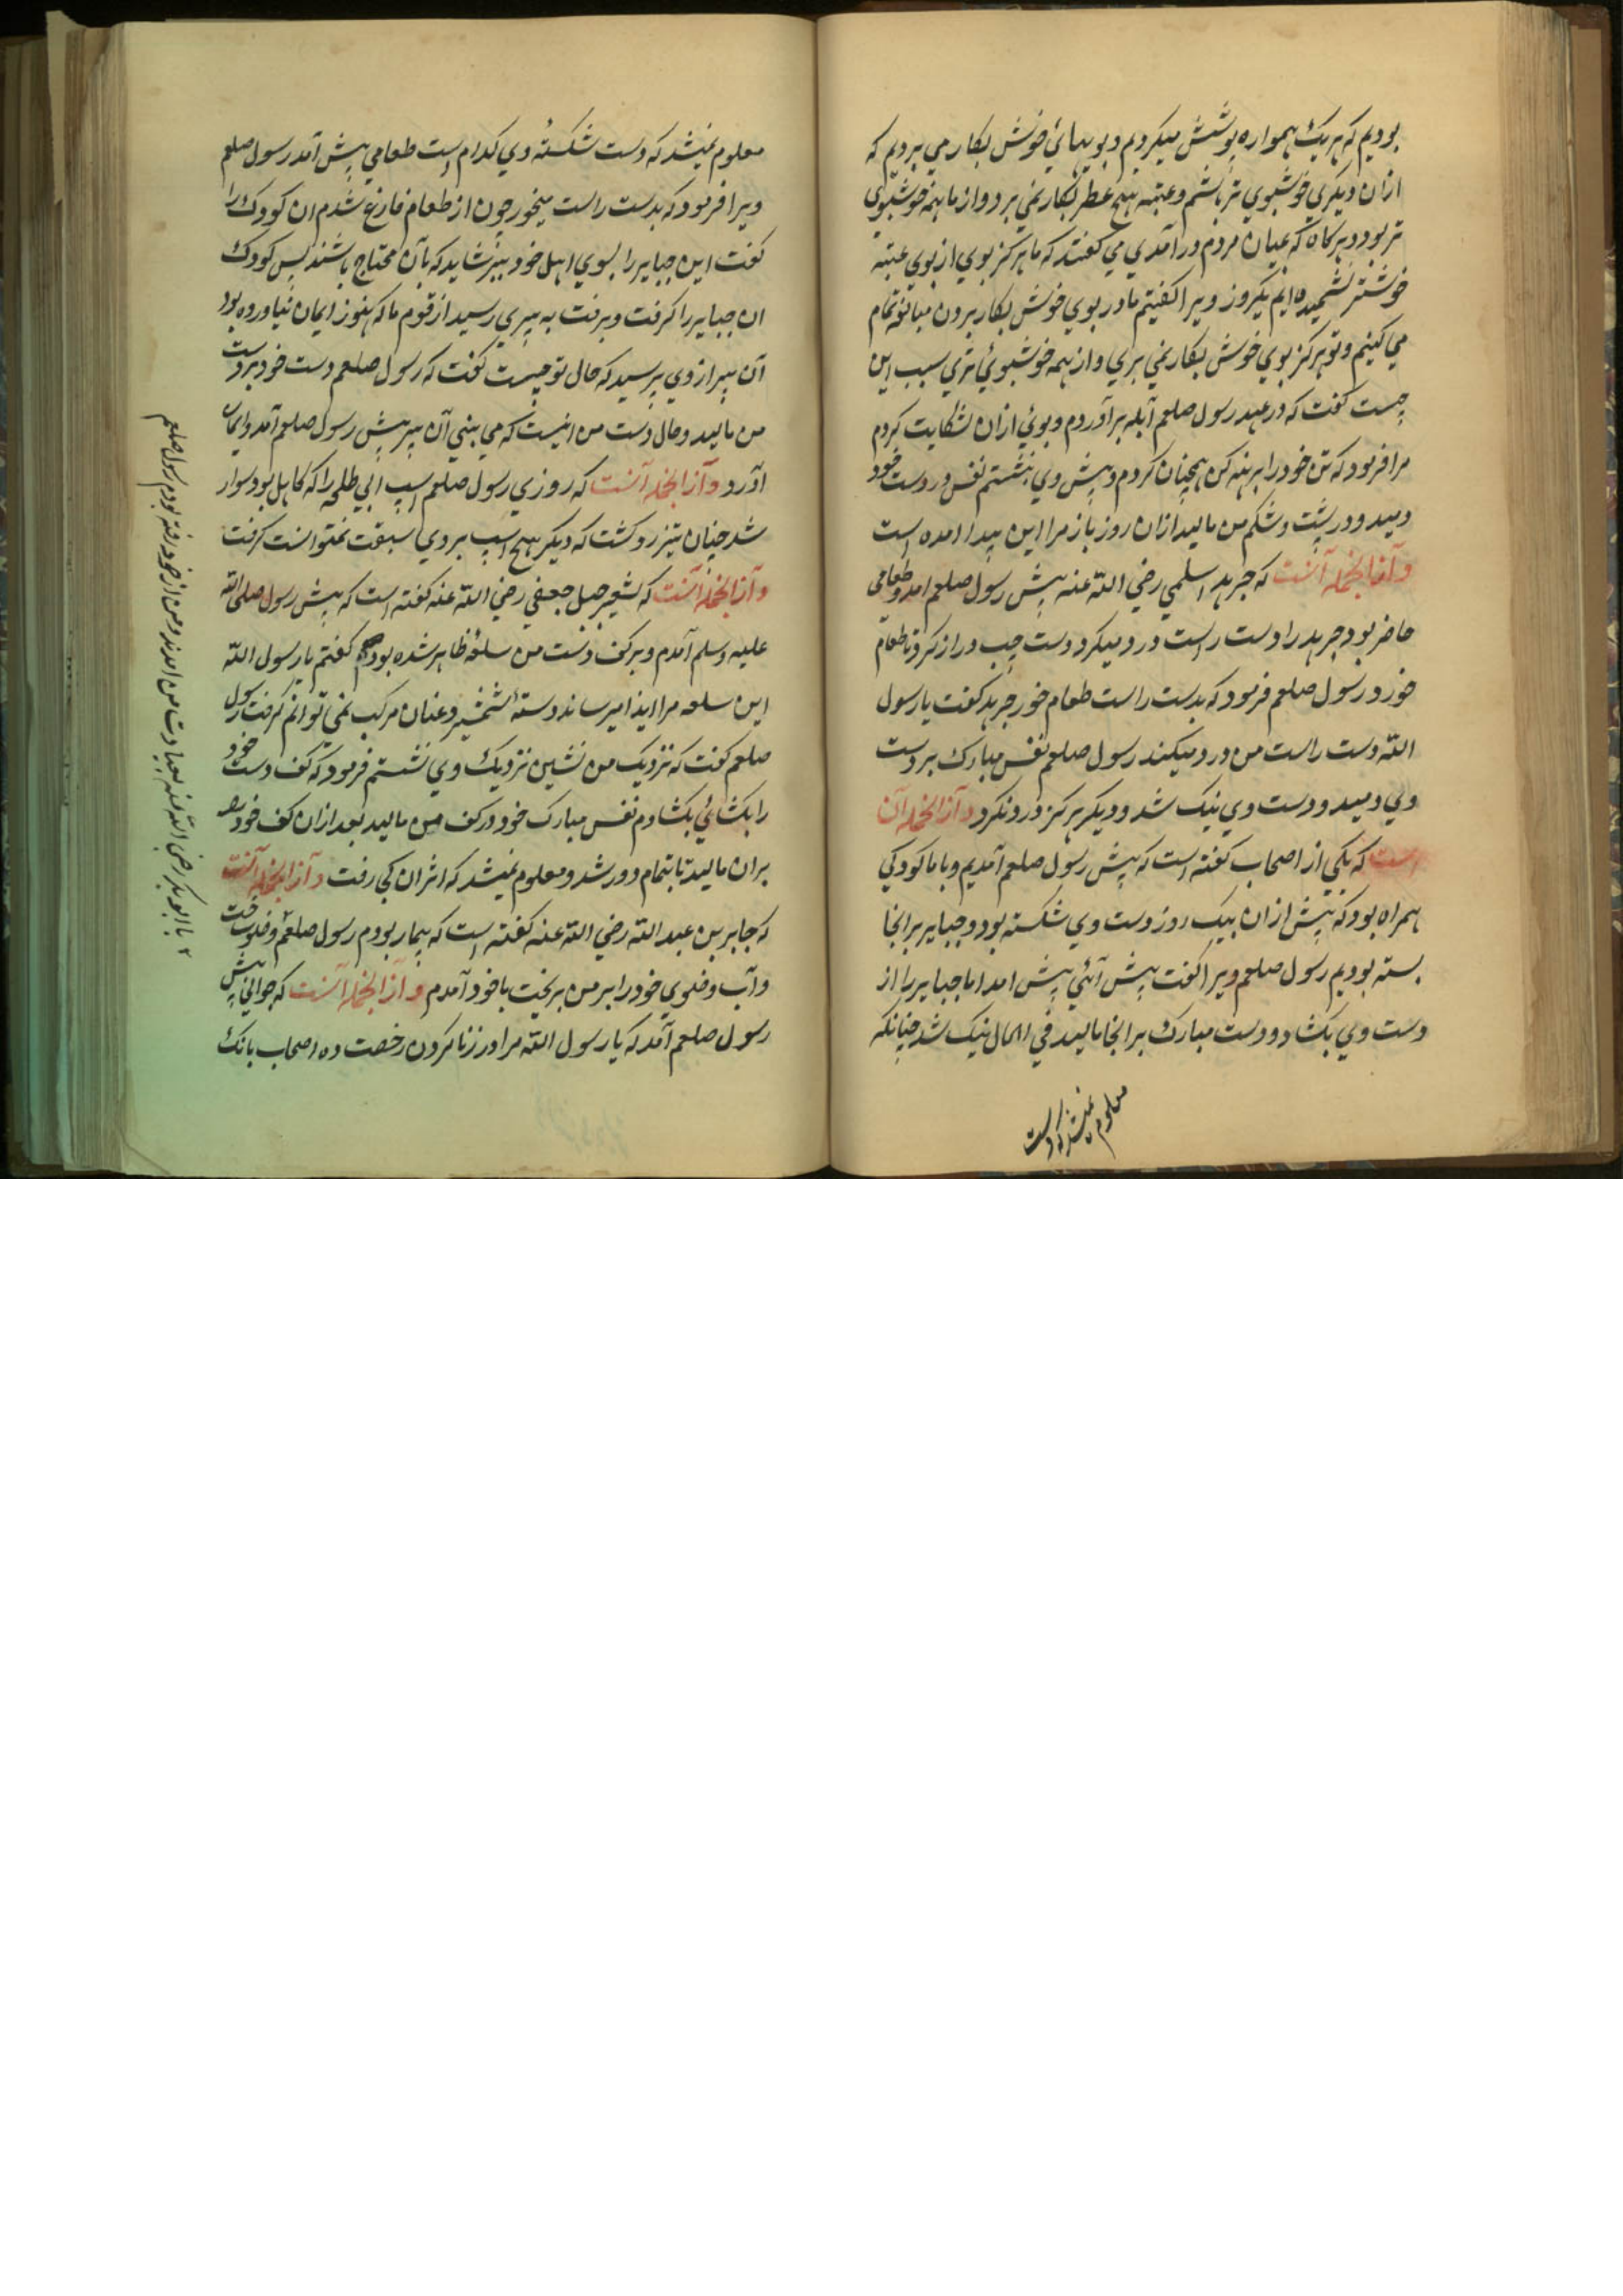 بودیم که هریک همواره پوشش میکردیم و بویهائ خوش بکار می بردیم که
ازان دیکری خوشبوی تر باشم و عتبه هیچ عطر بکار نمی برد و از ما همه خوشبوی
تر بود و هرکاه که بمیان مردم در آمدی می کفتند که ما هرکز بوی از بوی عتبه
خوشتر نشمیده ایم یکروز ویرا کفتیم ما در بوی خوش بکار بردن مبالغه تمام
می کنیم و تو هرکز بوی خوش بکار نمی بری و از همه خوشبوئ تری سبب این
چیست کفت که در عهد رسول صلعم آبله بر آوردم و بوئ ازان شکایت کردم
مرا فرمود که تن خود را برهنه کن همچنان کردم و پیش وی بنشستم نفس در دست خود
دمید و در پشت و شکم من مالید ازان روز باز مرا این پیدا امده است
و از انجمله آنست که جرهد اسلمی رضی الله عنه پیش رسول صلعم امد و طعامی
حاضر بود جرهد را دست راست درد میکرد دست چپ دراز کرد تا طعام
خورد رسول صلعم فرمود که بدست راست طعام خور جرهد کفت یا رسول
الله دست راست من درد میکند رسول صلعم نفس مبارک بر دست
وی دمید و دست وی نیک شد و دیکر هرکز درد نکرد و از انجمله آن
است که یکی از اصحاب کفته است که پیش رسول صلعم آمدیم و با ما کودکی
همراه بود که پیش ازان بیک روز دست وی شکسته بود و جبایر بر انجا
بسته بودیم رسول صلعم ویرا کفت پیش آئی پیش امد اما جبایر را از
دست وی بکشاد و دست مبارک بر انجا مالید فی الحال نیک شد چنانکه
معلوم نمیشد که دست
معلوم نمیشد که دست شکستهٔ وی کدام است طعامی پیش آمد رسول صلعم
ویرا فرمود که بدست راست میخور چون از طعام فارغ شدم ان کودک را
کفت این جبایر را بسوی اهل خود ببر شاید که بآن محتاج باشند پس کودک
ان جبایر را کرفت و برفت به پیری رسید از قوم ما که هنوز ایمان نیاورده بود
آن پیر از وی پرسید که حال تو چیست کفت که رسول صلعم دست خود بر دست
من مالید و حال دست من اینست که می بینی آن پیر پیش رسول صلعم آمد و ایمان
آورد و از انجمله آنست که روزی رسول صلعم اسپ ابی طلحه را که کاهل بود سوار
شد چنان تیز رو کشت که دیکر هیچ اسپ بر وی سبقت نمتوانست کرفت
و از انجمله آنست که شرحبیل جعفی رضی الله عنه کفته است که پیش رسول صلی الله
علیه وسلم آمدم و بر کف دست من سلعهٔ ظاهر شده بود کفتم یا رسول الله
این سلعه مرا ایذا میرساند دستهٔ شمشیر و عنان مرکب نمی توانم کرفت رسول
صلعم کفت که نزدیک من نشین نزدیک وی نشستم فرمود که کف دست خود
را بکشائ بکشادم نفس مبارک خود در کف من مالید بعد ازان کف خود
بران مالید تا بتمام دور شد و معلوم نمیشد که اثر ان کی رفت و از انجمله آنست
که جابر بن عبد الله رضی الله عنه کفته است که بیمار بودم رسول صلعم وضو ساخت
و آب وضوی خود را بر من بریخت با خود آمدم و از انجمله آنست که جوانی پیش
رسول صلعم آمد که یا رسول الله مرا در زنا کردن رخصت ده اصحاب بانک
۲ با ابو بکر رضی الله عنه بعیادت من امدند و من از خود رفته بودم رسول صلعم